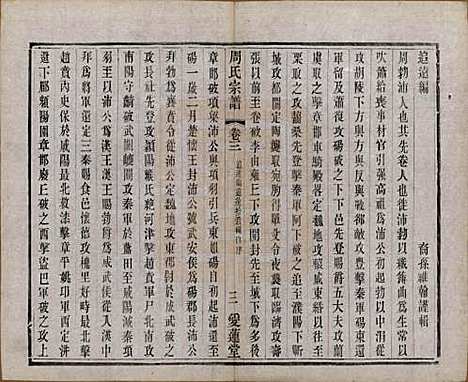 追遠編
裔孫維翰謹輯
周勃沛人也其先卷人也徙沛勃以織薄曲爲生常以
吹簫給喪事材官引彊高祖爲沛公初起勃以中涓從
攻胡陵下方與方與反與戰卻敵攻豐擊秦軍碭東還
軍留及蕭復攻碭破之下下邑先登賜爵五大夫攻蒙
虞取之擊章邯車騎殿定魏地攻爰戚東緡以往至栗
取之攻齧桑先登擊秦軍阿下破之追至濮陽下甄
城攻都關定陶襲取宛朐得單父令夜襲取臨濟攻壽
張以前至卷破李由雍丘下攻開封先至城下爲多後
周氏宗譜
卷三
三
愛蓮堂
章邯破項梁沛公與項羽引兵東如碭自初起沛還至
碭一歲二月楚懷王封沛公號武安侯爲碭郡長沛公
拜勃爲襄賁令從沛公定魏地攻東郡尉於成武破之
攻長社先登攻潁陽緱氏絶河津擊趙賁軍尸北南攻
南陽守齮破武關嶢關攻秦軍於藍田至咸陽滅秦項
羽至以沛公爲漢王漢王賜勃爵爲威武侯從入漢中
拜爲將軍還定三秦賜食邑懷德攻槐里好畤最北擊
趙賁內史保於咸陽最北救漆擊章平姚卬軍西定汧
還下郿頻陽圍章邯廢丘破之西擊盜巴軍破之攻上